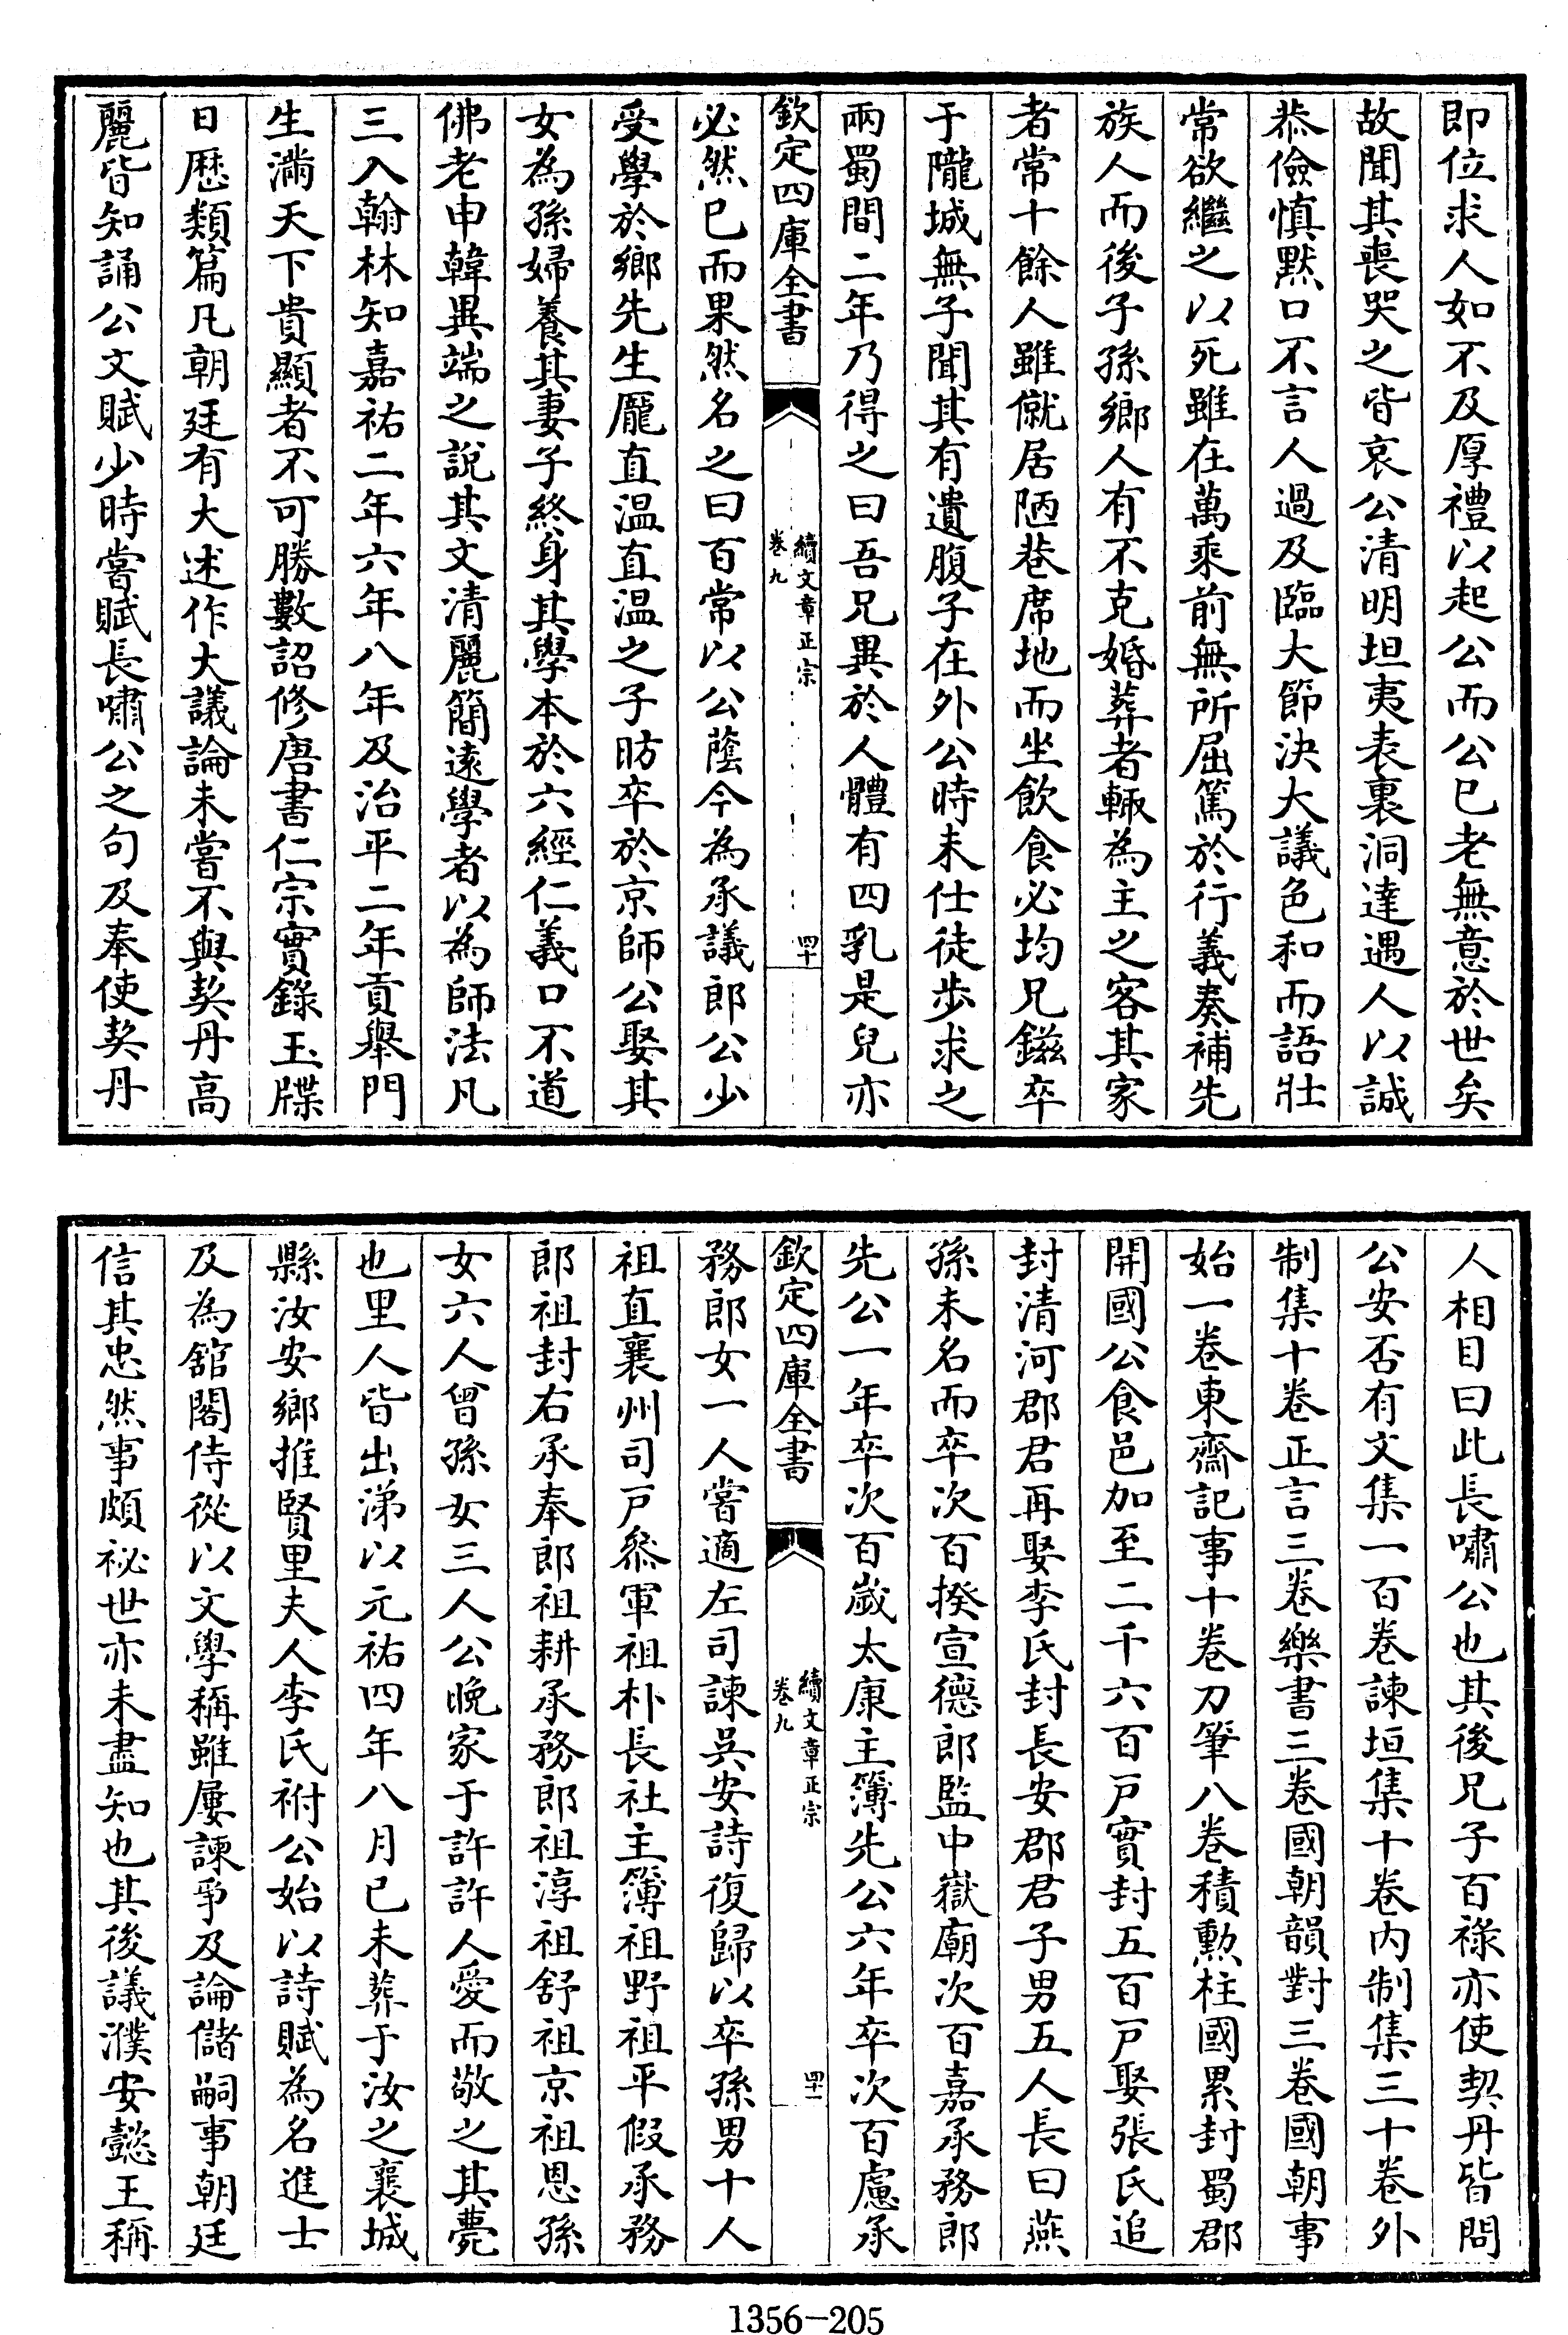 即位求人如不及厚禮以起公而公已老無意於世矣
故聞其喪哭之皆哀公清明坦夷表裏洞達遇人以誠
恭儉慎黙口不言人過及臨大節決大議色和而語壯
常欲繼之以死雖在萬乘前無所屈篤於行義奏補先
族人而後子孫鄉人有不克婚葬者輙為主之客其家
者常十餘人雖僦居陋巷席地而坐飲食必均兄鎡卒
于隴城無子聞其有遺腹子在外公時未仕徒步求之
兩蜀間二年乃得之曰吾兄異於人體有四乳是兒亦
欽定四庫全書
續文章正宗
卷九
四十
必然已而果然名之曰百常以公蔭今為承議郎公少
受學於鄉先生龎直温直温之子昉卒於京師公娶其
女為孫婦養其妻子終身其學本於六經仁義口不道
佛老申韓異端之說其文清麗簡遠學者以為師法凡
三入翰林知嘉祐二年六年八年及治平二年貢舉門
生滿天下貴顯者不可勝數詔修唐書仁宗實錄玉牒
日歷類篇凡朝廷有大述作大議論未嘗不與契丹高
麗皆知誦公文賦少時嘗賦長嘯公之句及奉使契丹
人相目曰此長嘯公也其後兄子百祿亦使契丹皆問
公安否有文集一百卷諫垣集十卷内制集三十卷外
制集十卷正言三卷樂書三卷國朝韻對三卷國朝事
始一卷東齋記事十卷刀筆八卷積勲柱國累封蜀郡
開國公食邑加至二千六百戸實封五百戸娶張氏追
封清河郡君再娶李氏封長安郡君子男五人長曰燕
孫未名而卒次百揆宣德郎監中嶽廟次百嘉承務郎
先公一年卒次百歲太康主簿先公六年卒次百慮承
欽定四庫全書
續文章正宗
卷九
四十一
務郎女一人嘗適左司諫吳安詩復歸以卒孫男十人
祖直襄州司戸叅軍祖朴長社主簿祖野祖平假承務
郎祖封右承奉郎祖耕承務郎祖淳祖舒祖京祖恩孫
女六人曾孫女三人公晚家于許許人愛而敬之其薨
也里人皆出涕以元祐四年八月己未葬于汝之襄城
縣汝安鄉推賢里夫人李氏祔公始以詩賦為名進士
及為舘閣侍從以文學稱雖屢諫爭及論儲嗣事朝廷
信其忠然事頗祕世亦未盡知也其後議濮安懿王稱
1356-205